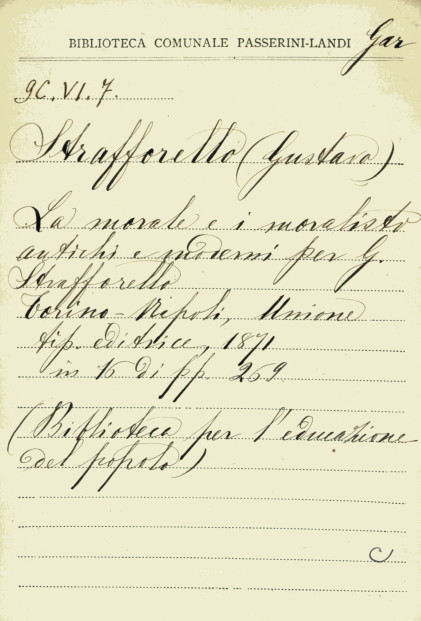 BIBLIOTECA COMUNALE PASSERINI-LANDI Gar
9C.VI.7.
Strafforello (Gustavo)
La morale e i moralisti
antichi e moderni per G.
Strafforello
Torino-Napoli, Unione
tip. editrice, 1871
in 16 di pp. 269
(Biblioteca per l'educazione
del popolo)
C